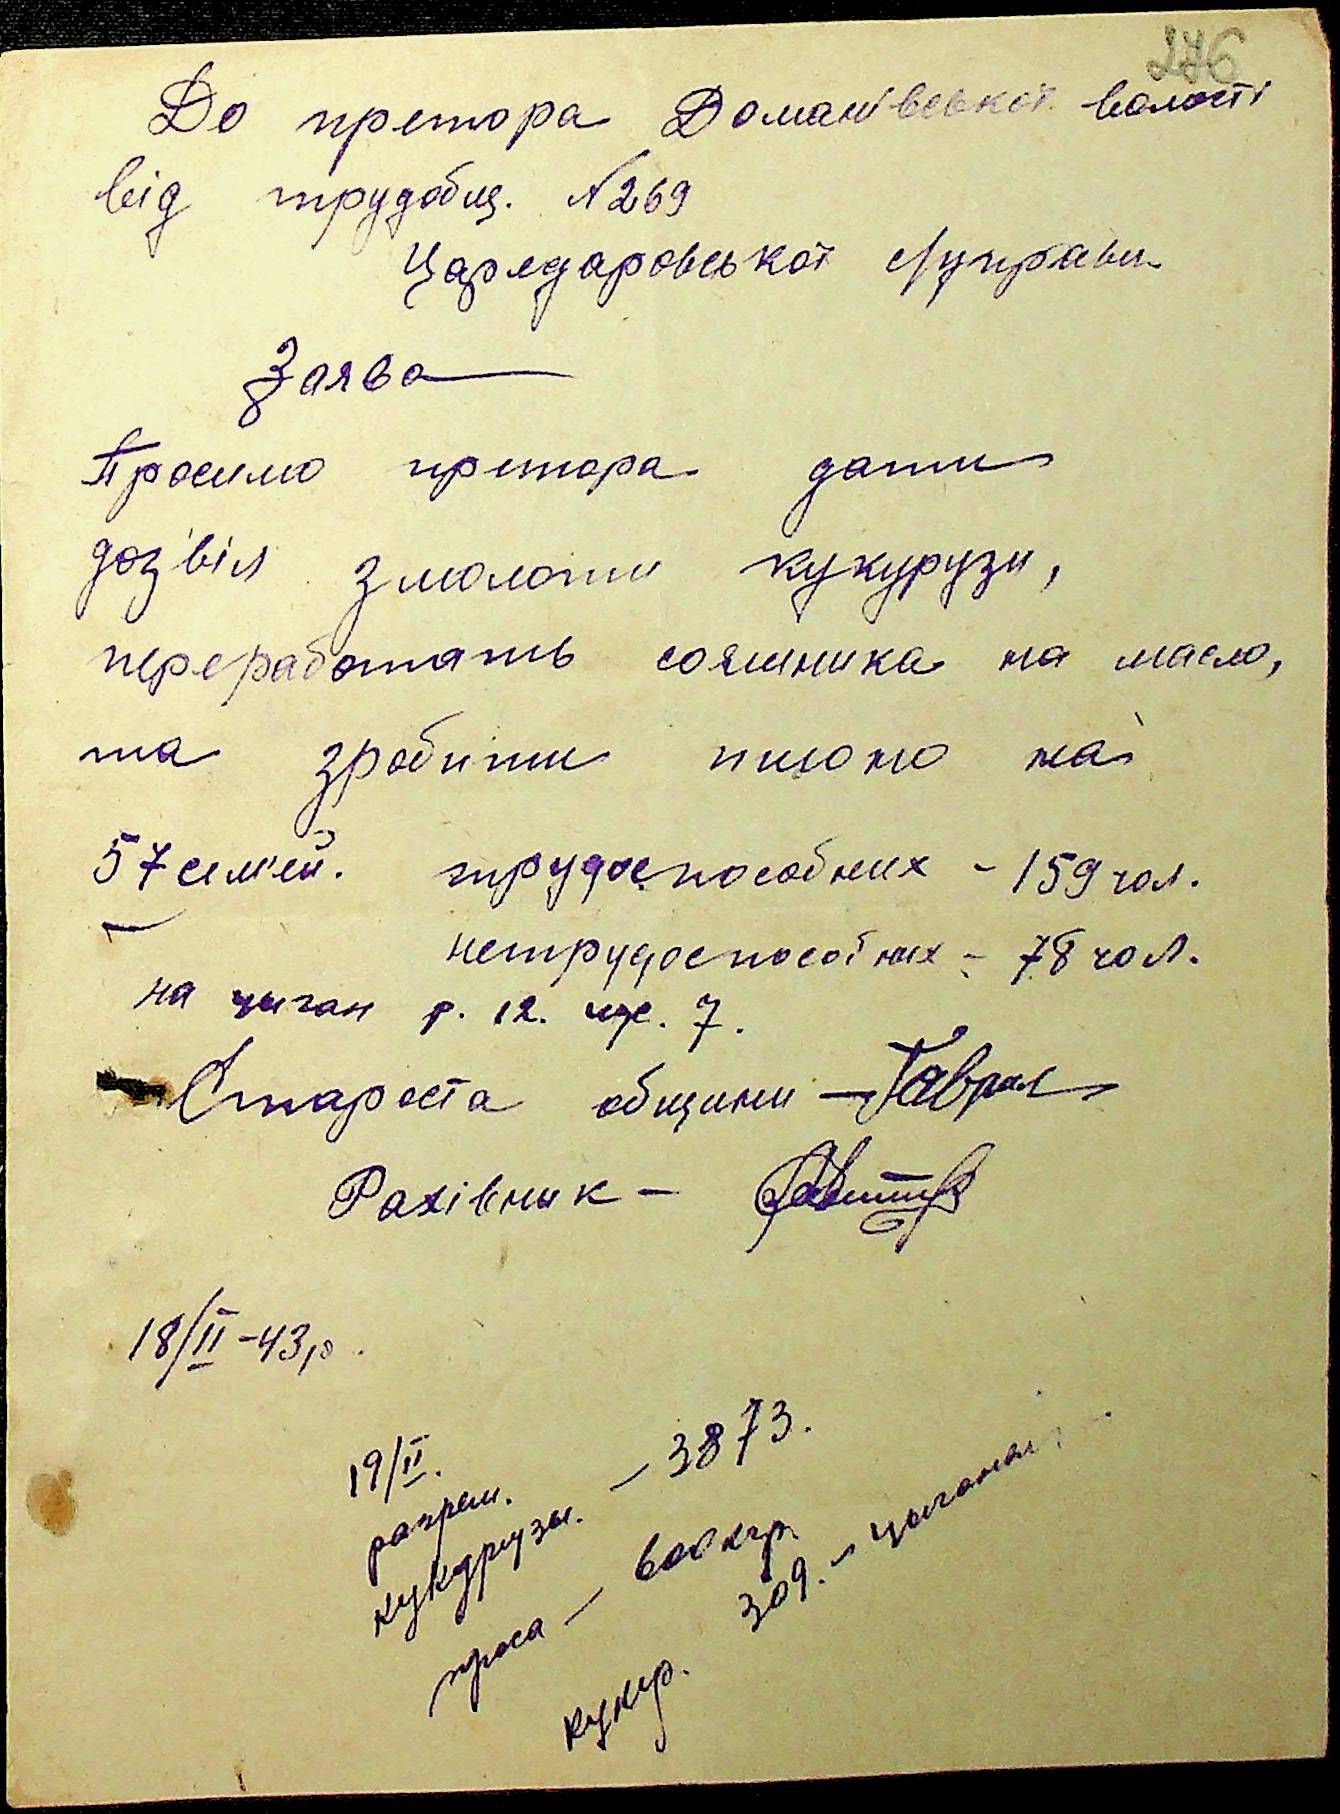 276
До претора Доманівської волості
від трудобщ. №269
Царедаровської с/управи
Заява
Просимо претора дати
дозвіл змолоти кукурузи,
переработать сояшника на масло,
та зробити пшоно на
57 семей. трудоспособних - 159 чол.
нетрудоспособних - 78 чол.
на цыган р. 12. иж. 7.
Староста общини -
Рахівник -
18/II-43р.
19/II.
разреш.
кукурузы. - 3873.
проса - 600 кгр.
кукур. 309. - цыганам